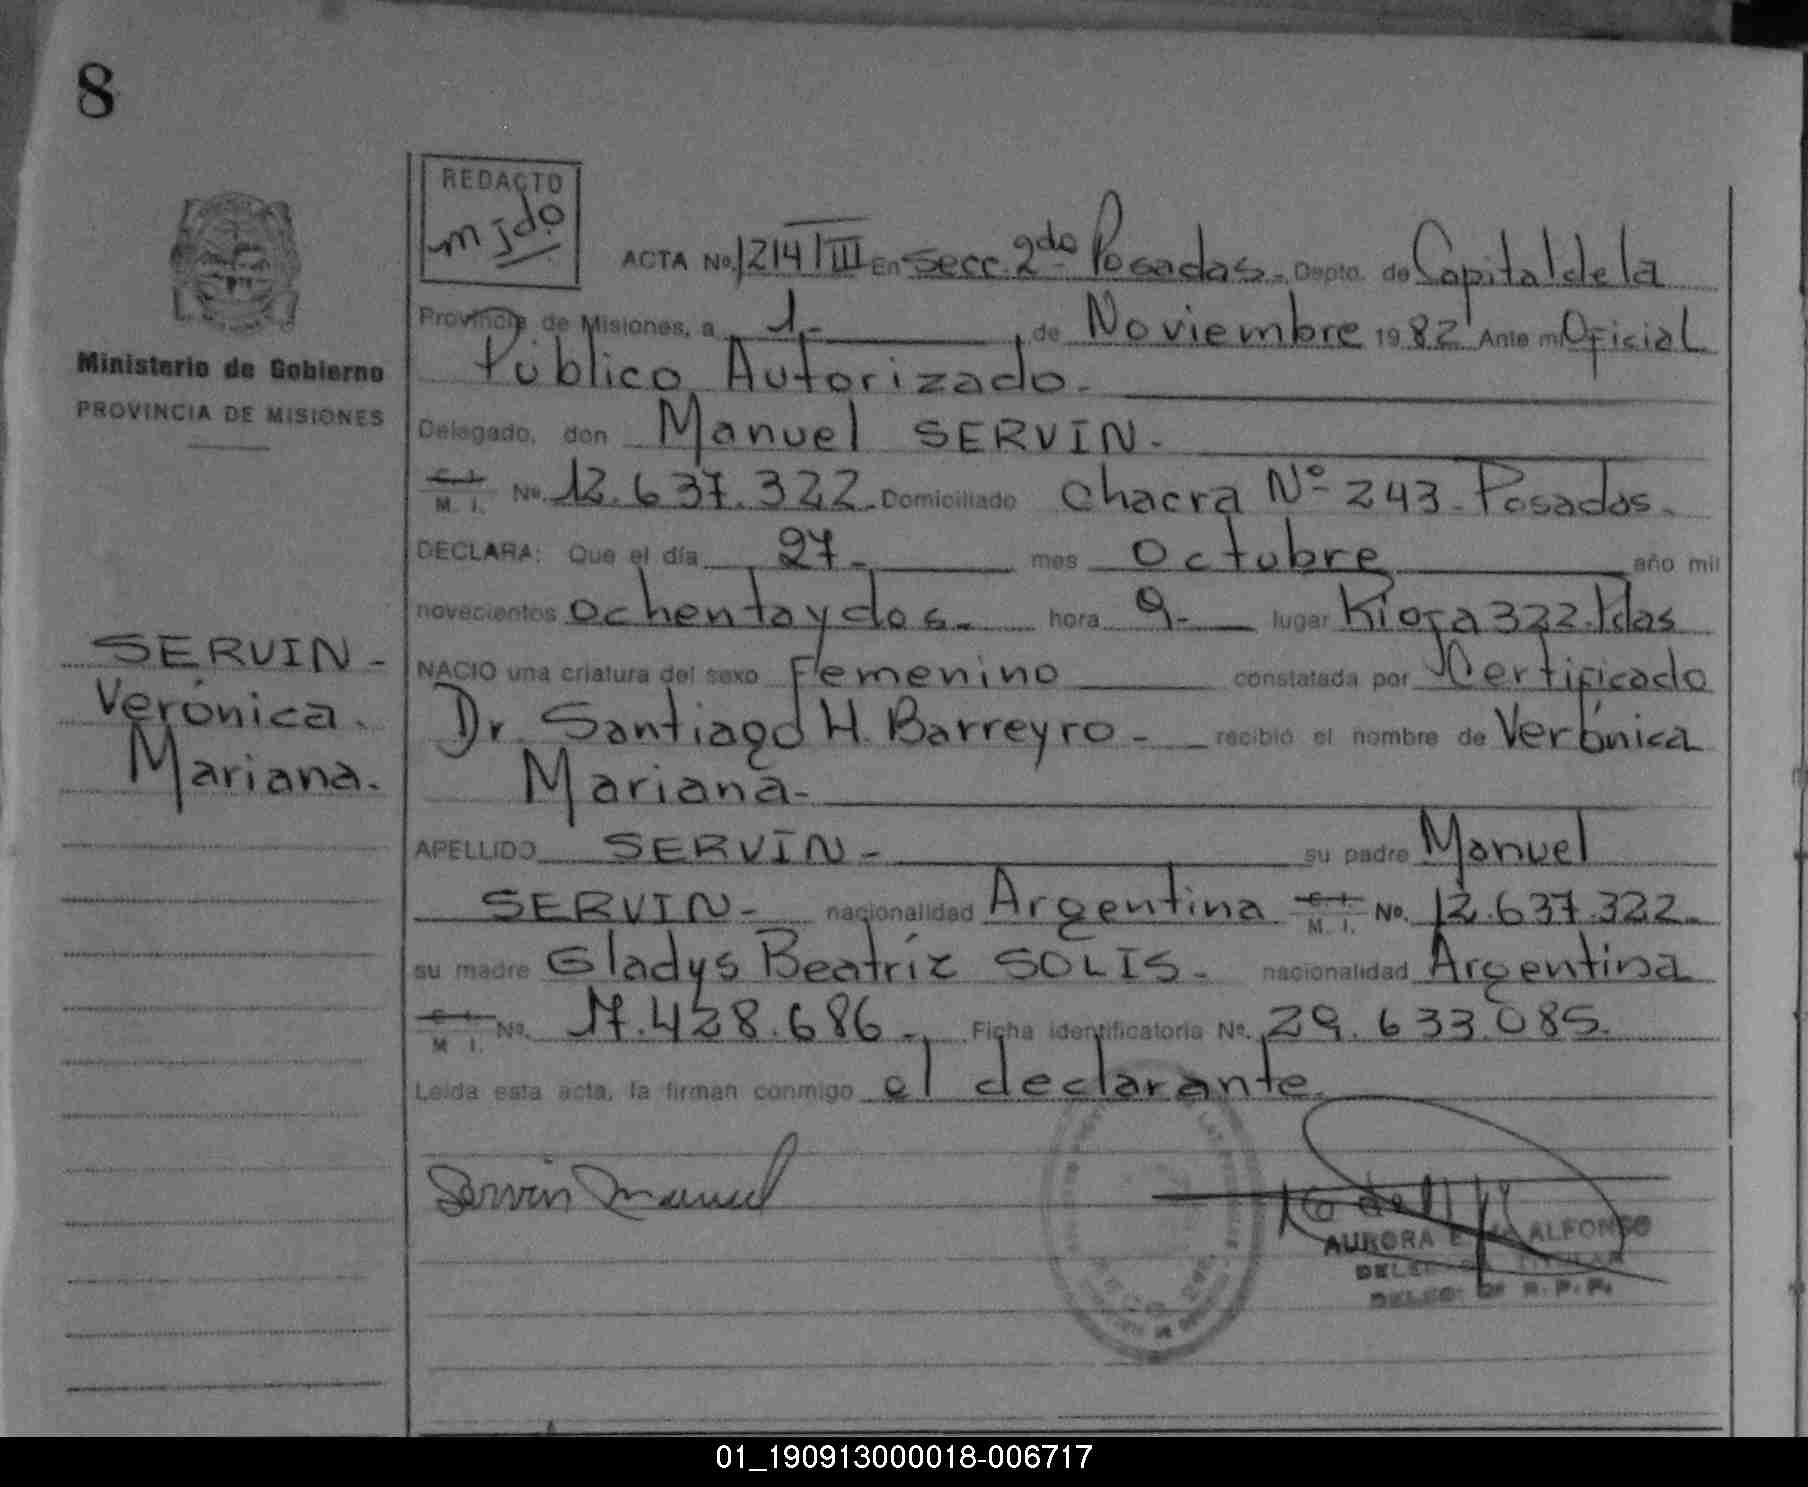 8
REDACTO
mjdo
ACTA No. 1214/III En Secc. 2do Posadas.- Depto. de Capital de la
Provincia de Misiones, a 1.- de Noviembre 1982 Ante mi Oficial
Público Autorizado.-
Ministerio de Gobierno
PROVINCIA DE MISIONES
Delegado, don Manuel SERVIN.-
C. I. M. I. No. 12.637.322.- Domiciliado Chacra Nº 243.- Posadas.-
DECLARA: Que el día 27.- mes Octubre año mil
novecientos ochenta y dos.- hora 9.- lugar Rioja 322. Pdas
NACIO una criatura del sexo Femenino constatada por Certificado
Dr. Santiago H. Barreyro.- recibió el nombre de Verónica
Mariana.-
SERVIN.-
Verónica.
Mariana.-
APELLIDO SERVIN.- su padre Manuel
SERVIN.- nacionalidad Argentina C. I. M. I. No. 12.637.322.-
su madre Gladys Beatríz SOLIS.- nacionalidad Argentina
C. I. M. I. No. 17.428.686.- Ficha identificatoria No. 29.633.085.
Leída esta acta, la firman conmigo el declarante.
Servin Manuel
AURORA E. ALFONSO
01_190913000018-006717